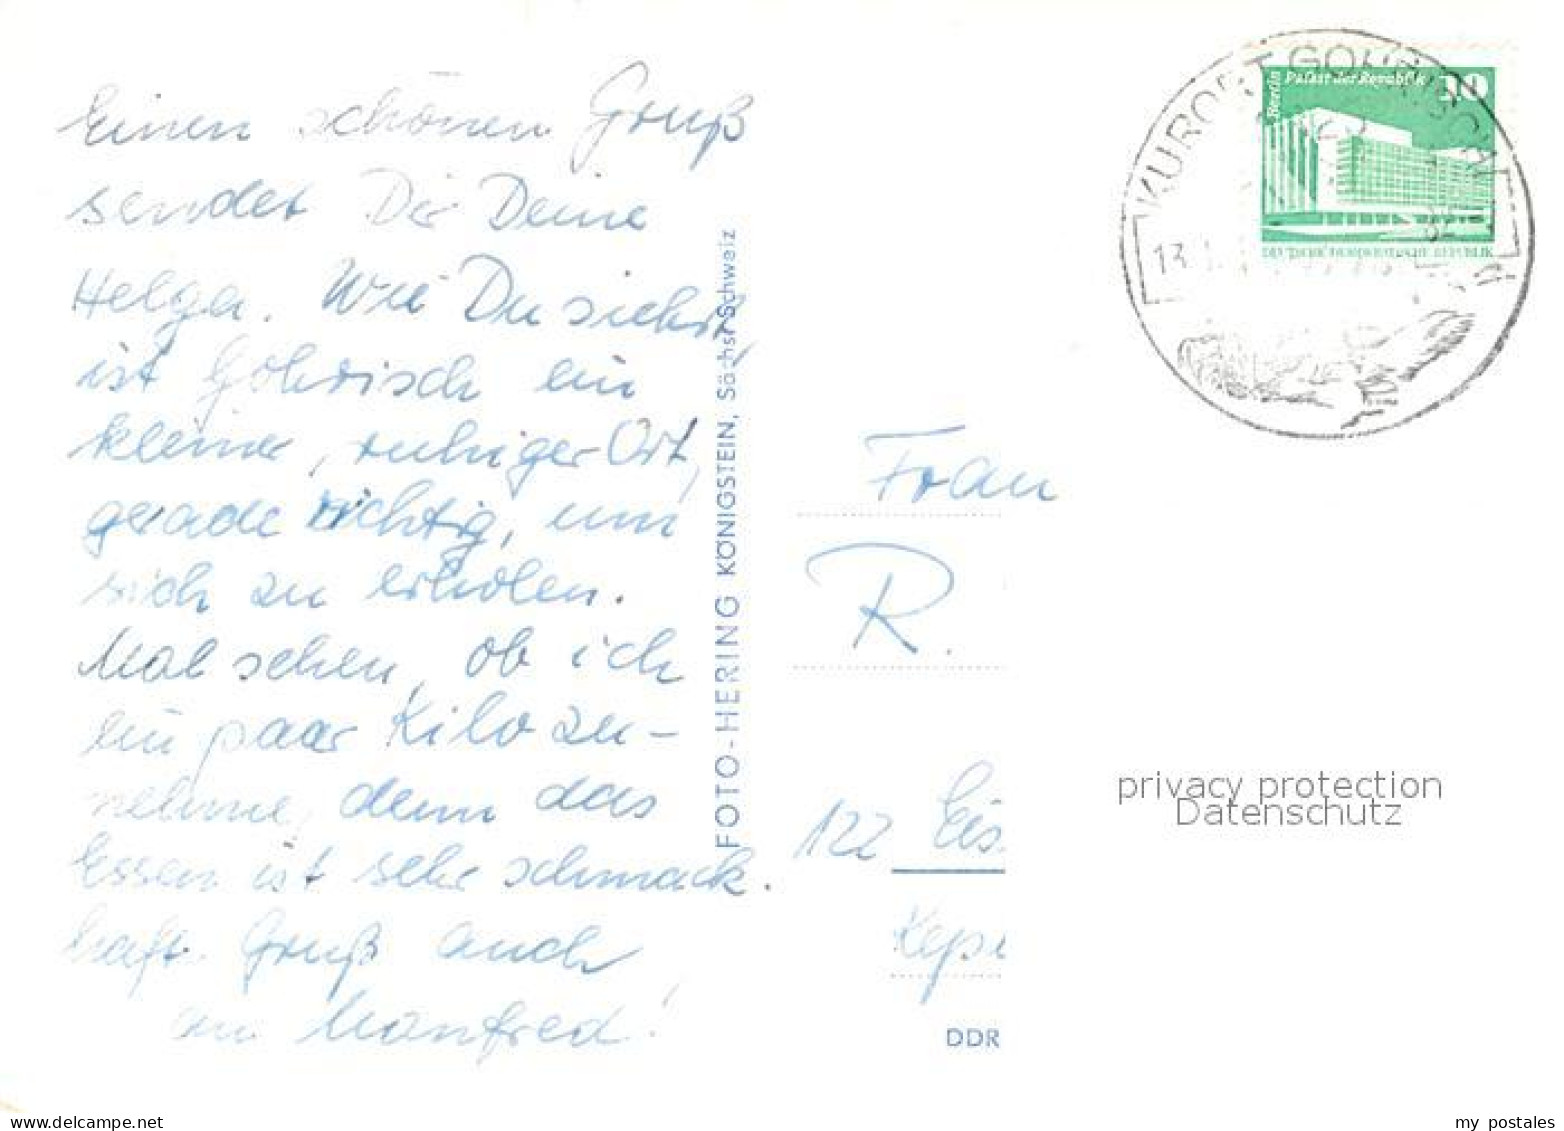 Einen schönen Gruß
sendet Dir Deine
Helga. Wie Du siehst,
ist Gohrisch ein
kleiner, ruhiger Ort,
gerade richtig, um
sich zu erholen.
Mal sehen, ob ich
ein paar Kilo zu-
nehme, denn das
Essen ist sehr schmack-
haft. Gruß auch
an Manfred!
FOTO-HERING KÖNIGSTEIN, Sächs. Schweiz
KURORT GOHRISCH
13.
Berlin Palast der Republik 10
DEUTSCHE DEMOKRATISCHE REPUBLIK
Frau
R.
122 Eis
Kep
DDR
privacy protection
Datenschutz
www.delcampe.net
my_postales